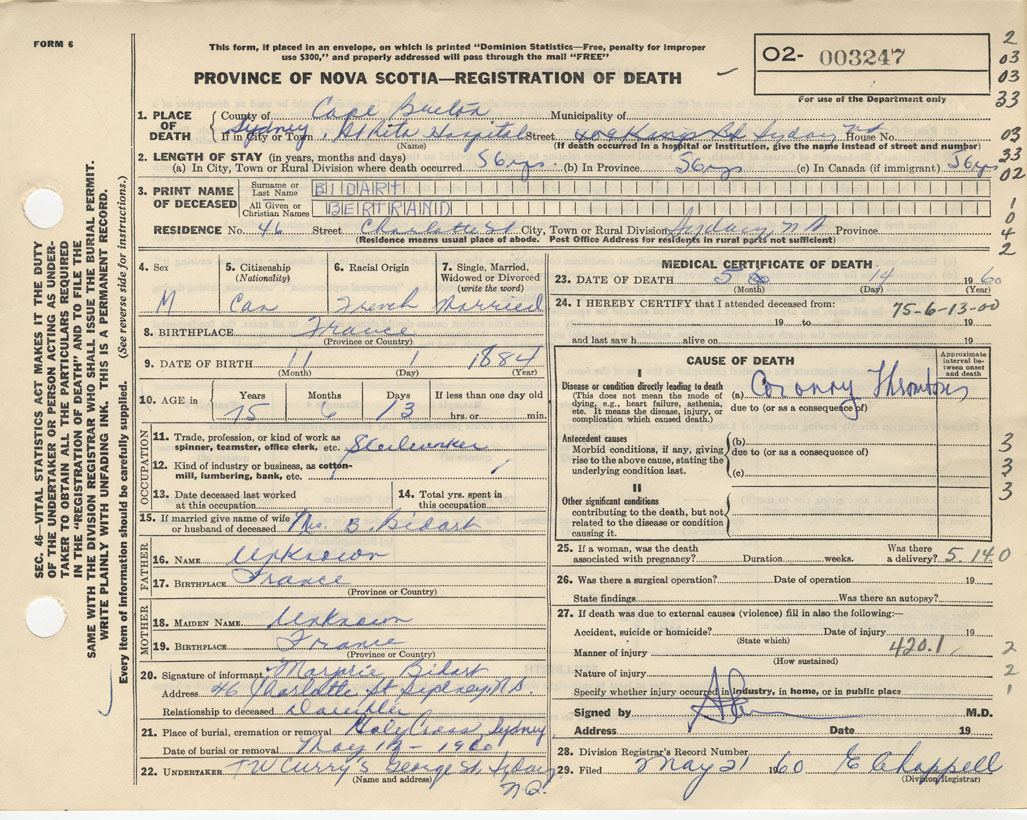 FORM 6
This form, if placed in an envelope, on which is printed "Dominion Statistics—Free, penalty for improper
use $300," and properly addressed will pass through the mail "FREE"
PROVINCE OF NOVA SCOTIA—REGISTRATION OF DEATH
02- 003247
For use of the Department only
2
03
03
33
03
33
02
1
0
4
2
SEC. 46—VITAL STATISTICS ACT MAKES IT THE DUTY
OF THE UNDERTAKER OR PERSON ACTING AS UNDER-
TAKER TO OBTAIN ALL THE PARTICULARS REQUIRED
IN THE "REGISTRATION OF DEATH" AND TO FILE THE
SAME WITH THE DIVISION REGISTRAR WHO SHALL ISSUE THE BURIAL PERMIT.
WRITE PLAINLY WITH UNFADING INK. THIS IS A PERMANENT RECORD.
Every item of information should be carefully supplied. (See reverse side for instructions.)
1. PLACE OF DEATH
County of Cape Breton Municipality of
If in City or Town Sydney, St Rita Hospital Street 409 Kings Rd Sydney NS House No.
(Name) (If death occurred in a hospital or institution, give the name instead of street and number)
2. LENGTH OF STAY (in years, months and days)
(a) In City, Town or Rural Division where death occurred 56 yrs. (b) In Province 56 yrs (c) In Canada (if immigrant) 56 yr
3. PRINT NAME OF DECEASED
Surname or Last Name BIDART
All Given or Christian Names BERTRAND
RESIDENCE No. 46 Street Charlotte St City, Town or Rural Division Sydney NS Province
(Residence means usual place of abode. Post Office Address for residents in rural parts not sufficient)
4. Sex M
5. Citizenship (Nationality) Can
6. Racial Origin French
7. Single, Married, Widowed or Divorced (write the word) Married
8. BIRTHPLACE France
(Province or Country)
9. DATE OF BIRTH 11 1 1884
(Month) (Day) (Year)
10. AGE in Years Months Days If less than one day old
75 6 13 hrs. or min.
OCCUPATION
11. Trade, profession, or kind of work as
spinner, teamster, office clerk, etc. Steelworker
12. Kind of industry or business, as cotton-
mill, lumbering, bank, etc.
13. Date deceased last worked
at this occupation
14. Total yrs. spent in
this occupation
15. If married give name of wife
or husband of deceased Mrs. B. Bidart
FATHER
16. NAME Unknown
17. BIRTHPLACE France
(Province or Country)
MOTHER
18. MAIDEN NAME Unknown
19. BIRTHPLACE France
(Province or Country)
20. Signature of informant Marjorie Bidart
Address 46 Charlotte St Sydney N.S.
Relationship to deceased Daughter
21. Place of burial, cremation or removal Holy Cross, Sydney
Date of burial or removal May 1960
22. UNDERTAKER T W Curry's George St. Sydney
N.S.
(Name and address)
MEDICAL CERTIFICATE OF DEATH
23. DATE OF DEATH 5 14 1960
(Month) (Day) (Year)
24. I HEREBY CERTIFY that I attended deceased from: 75-6-13-00
19 to 19
and last saw h alive on 19
CAUSE OF DEATH
Approximate interval between onset and death
I
Disease or condition directly leading to death
(This does not mean the mode of
dying, e.g., heart failure, asthenia,
etc. It means the disease, injury, or
complication which caused death.)
(a) Coronary Thrombosis
due to (or as a consequence of)
Antecedent causes
Morbid conditions, if any, giving
rise to the above cause, stating the
underlying condition last.
(b)
due to (or as a consequence of)
(c)
3
3
3
II
Other significant conditions
contributing to the death, but not
related to the disease or condition
causing it.
25. If a woman, was the death
associated with pregnancy? Duration weeks. Was there
a delivery? 5.140
26. Was there a surgical operation? Date of operation 19
State findings Was there an autopsy?
27. If death was due to external causes (violence) fill in also the following:—
Accident, suicide or homicide? Date of injury 19
(State which)
Manner of injury 420.1 2
(How sustained)
Nature of injury 2
Specify whether injury occurred in industry, in home, or in public place 1
Signed by M.D.
Address Date 19
28. Division Registrar's Record Number
29. Filed May 21 1960 E Chappell
(Division Registrar)